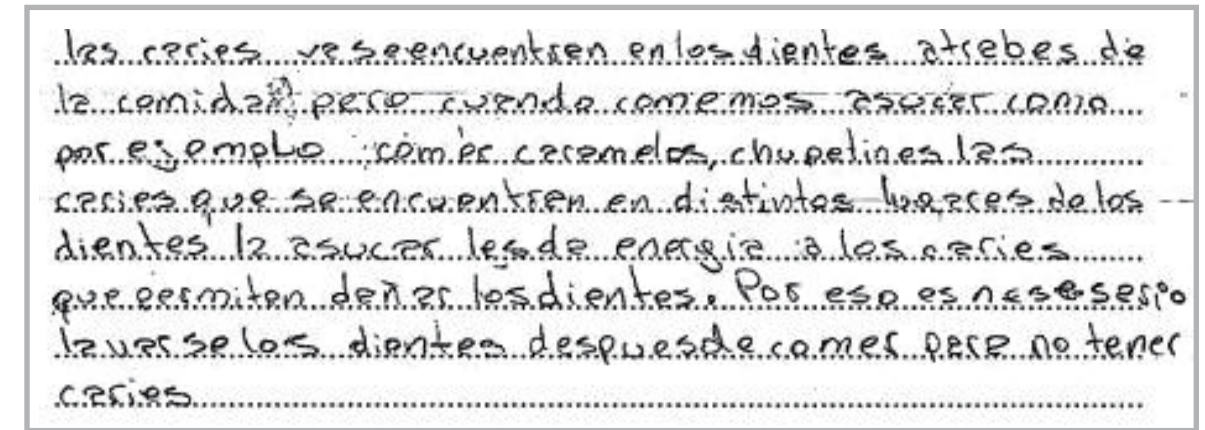 las caries ya se encuentran en los dientes atrebes de
la comida pero cuando comemos asucar como
por ejemplo comer caramelos, chupetines las
caries que se encuentran en distintos lugares de los
dientes la asucar les da energia a los caries
que permiten dañar los dientes. Por eso es nesesario
lavarse los dientes despues de comer para no tener
caries